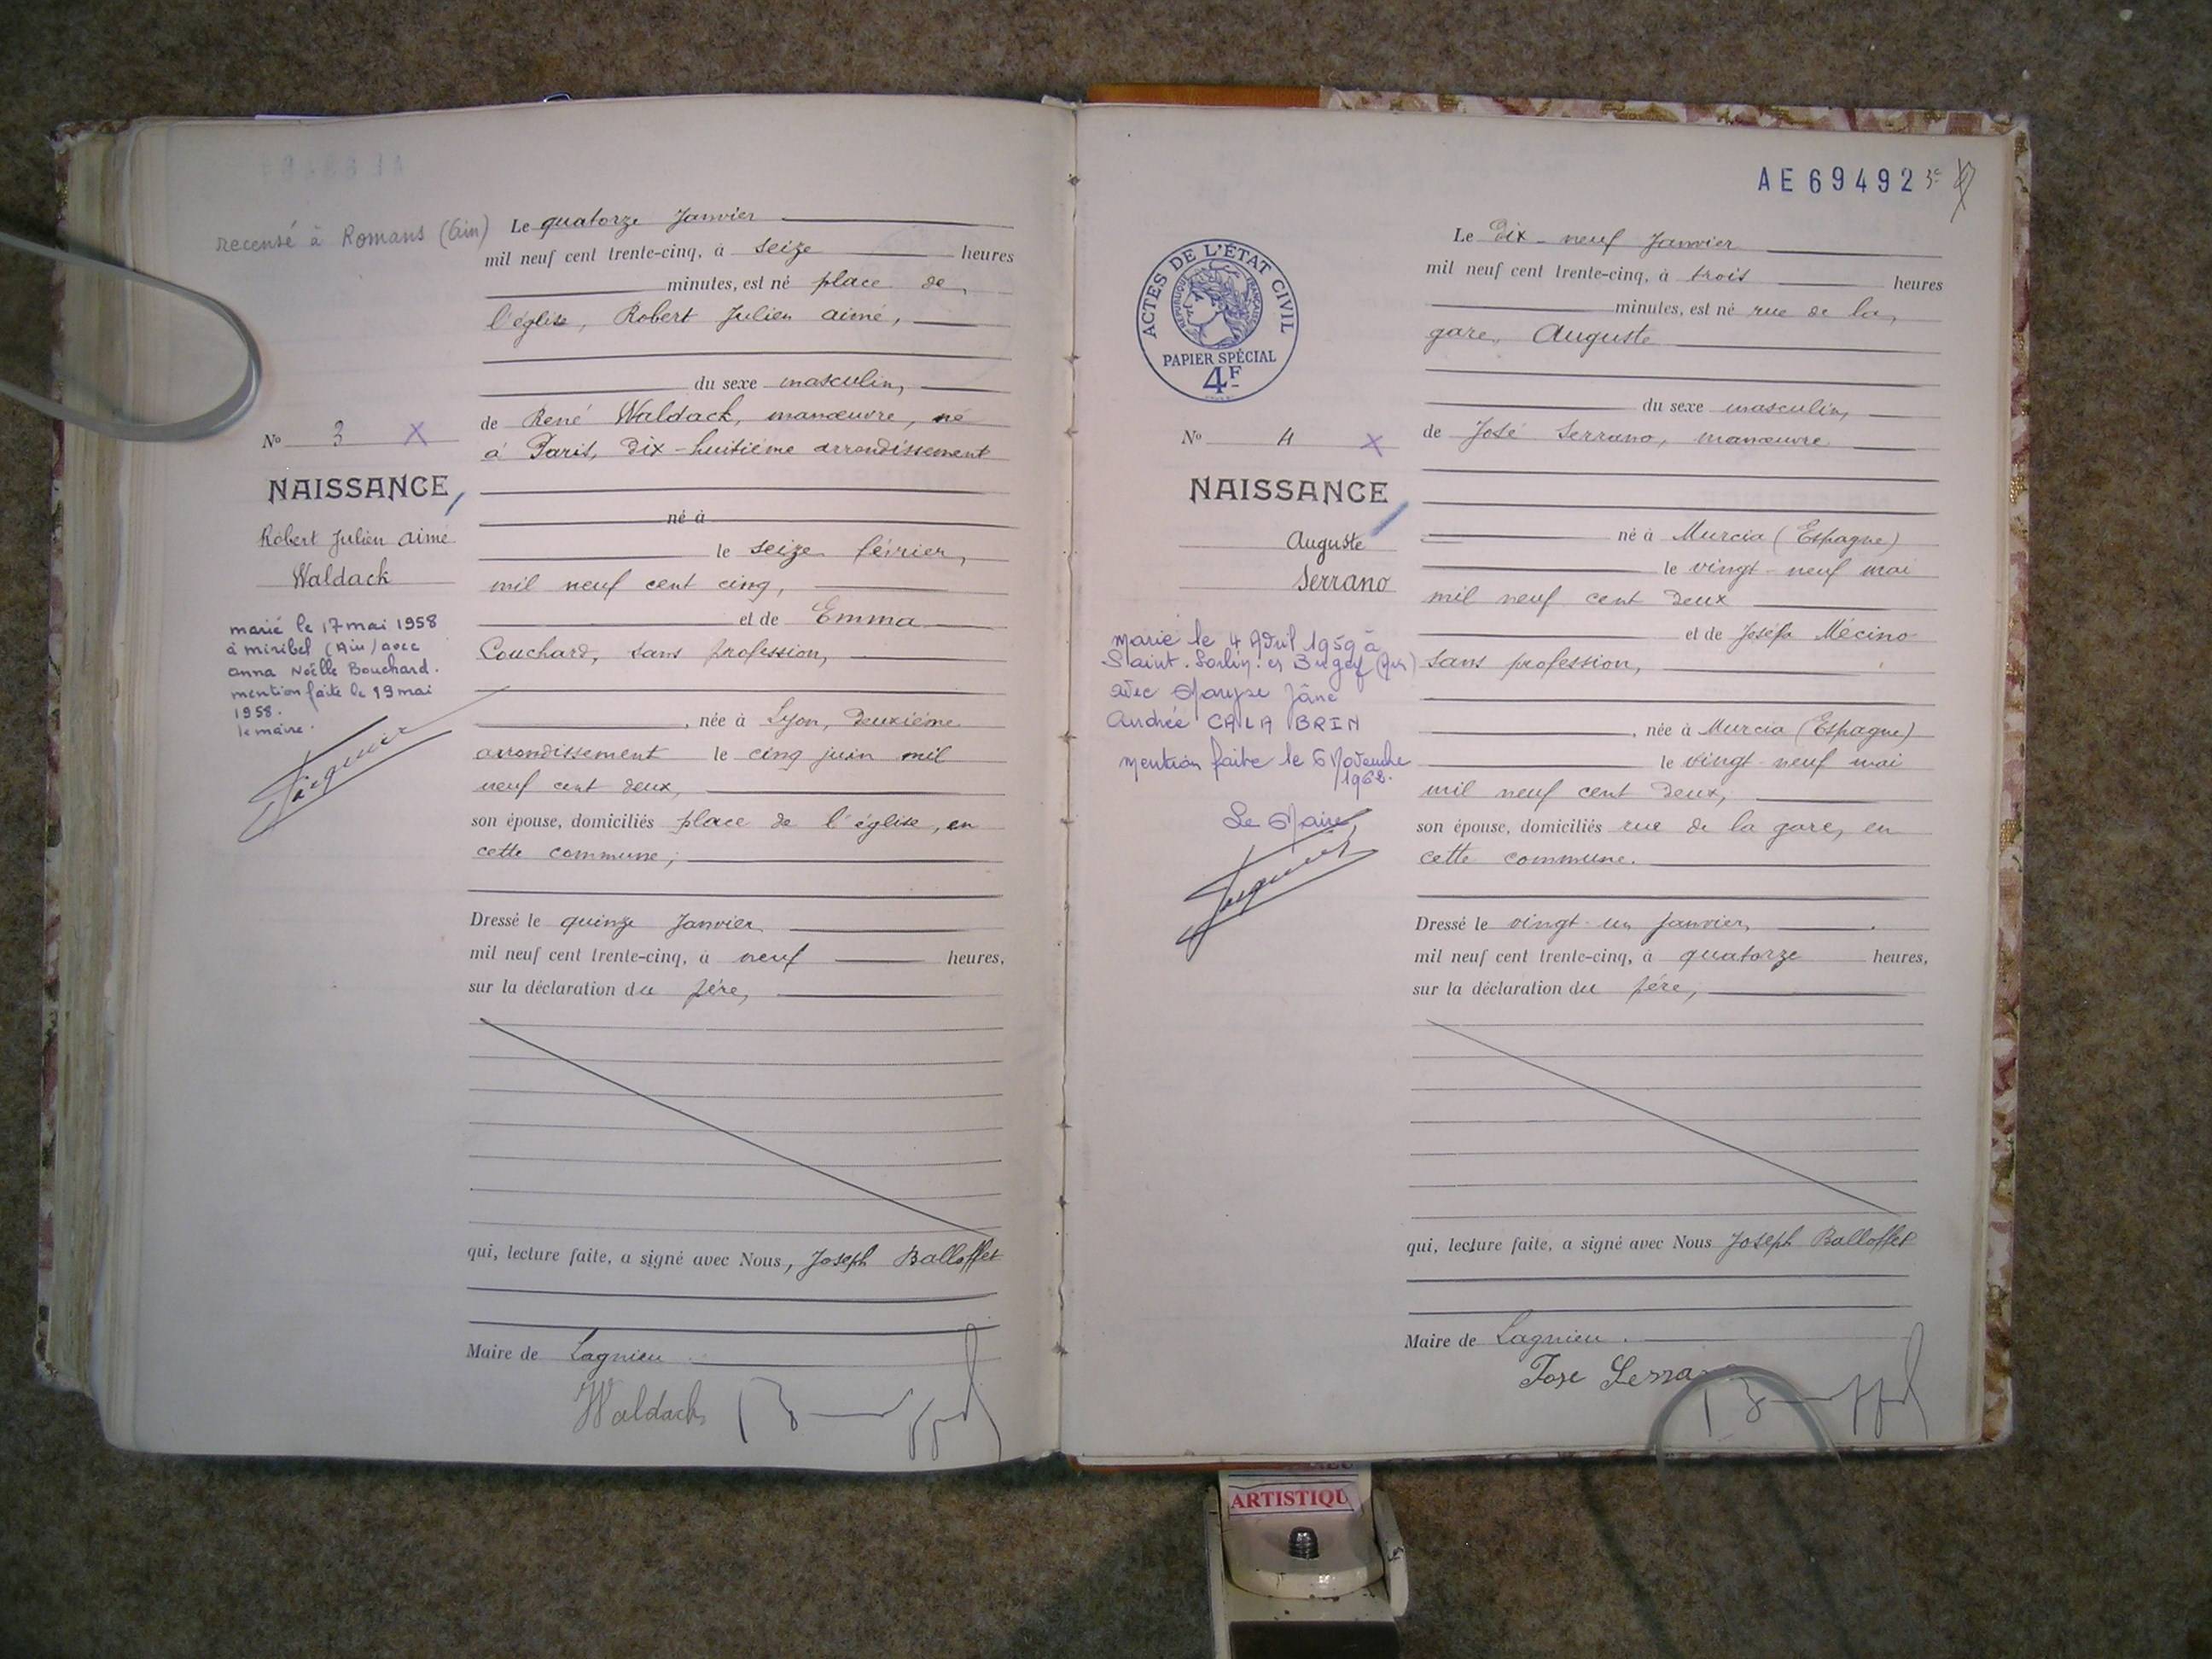 recensé à Romans (Ain)
Le quatorze Janvier
mil neuf cent trente-cinq, à seize heures
minutes, est né place de
l'église, Robert Julien aimé,
du sexe masculin,
de René Waldack, manœuvre, né
à Paris, Dix-huitième arrondissement
né à
le seize février,
mil neuf cent cinq,
et de Emma
Couchard, sans profession,
, née à Lyon, Deuxième
arrondissement le cinq juin mil
neuf cent deux,
son épouse, domiciliés place de l'église, en
cette commune;
Dressé le quinze Janvier
mil neuf cent trente-cinq, à neuf heures,
sur la déclaration du père,
qui, lecture faite, a signé avec Nous, Joseph Balloffet
Maire de Lagnieu
Waldack
No 3 X
NAISSANCE
Robert Julien aimé
Waldack
marié le 17 mai 1958
à miribel (Ain) avec
anna Noëlle Bouchard.
mention faite le 19 mai
1958.
le maire.
AE 69492
ACTES DE L'ÉTAT CIVIL
RÉPUBLIQUE FRANÇAISE
PAPIER SPÉCIAL
4F
Le Dix-neuf Janvier
mil neuf cent trente-cinq, à trois heures
minutes, est né rue de la
gare, Auguste
du sexe masculin,
de José Serrano, manœuvre
né à Murcia (Espagne)
le vingt-neuf mai
mil neuf cent deux
et de Joséfa Mécino
sans profession,
, née à Murcia (Espagne)
le vingt-neuf mai
mil neuf cent deux,
son épouse, domiciliés rue de la gare, en
cette commune.
Dressé le vingt-un Janvier,
mil neuf cent trente-cinq, à quatorze heures,
sur la déclaration du père,
qui, lecture faite, a signé avec Nous Joseph Balloffet
Maire de Lagnieu.
Jose Serra
No 4 X
NAISSANCE
Auguste
Serrano
marié le 4 Avril 1959 à
Saint-Sorlin-en Bugey (Ain)
avec Maryse Jâne
Andrée CALA BRIN
mention faite le 6 Novembre
Le Maire,
ARTISTIQU